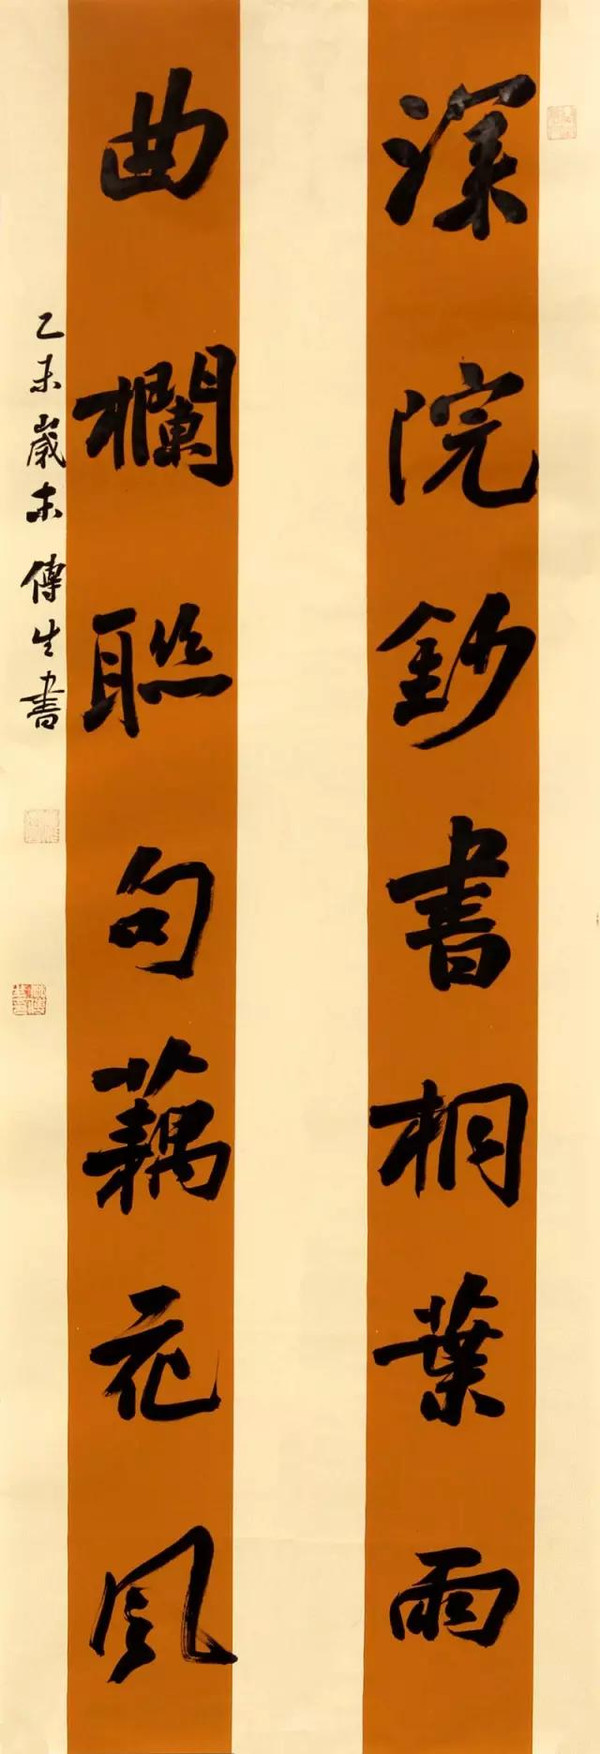 深院鈔書桐葉雨
曲欄聯句藕花風
乙未歲末傳生書